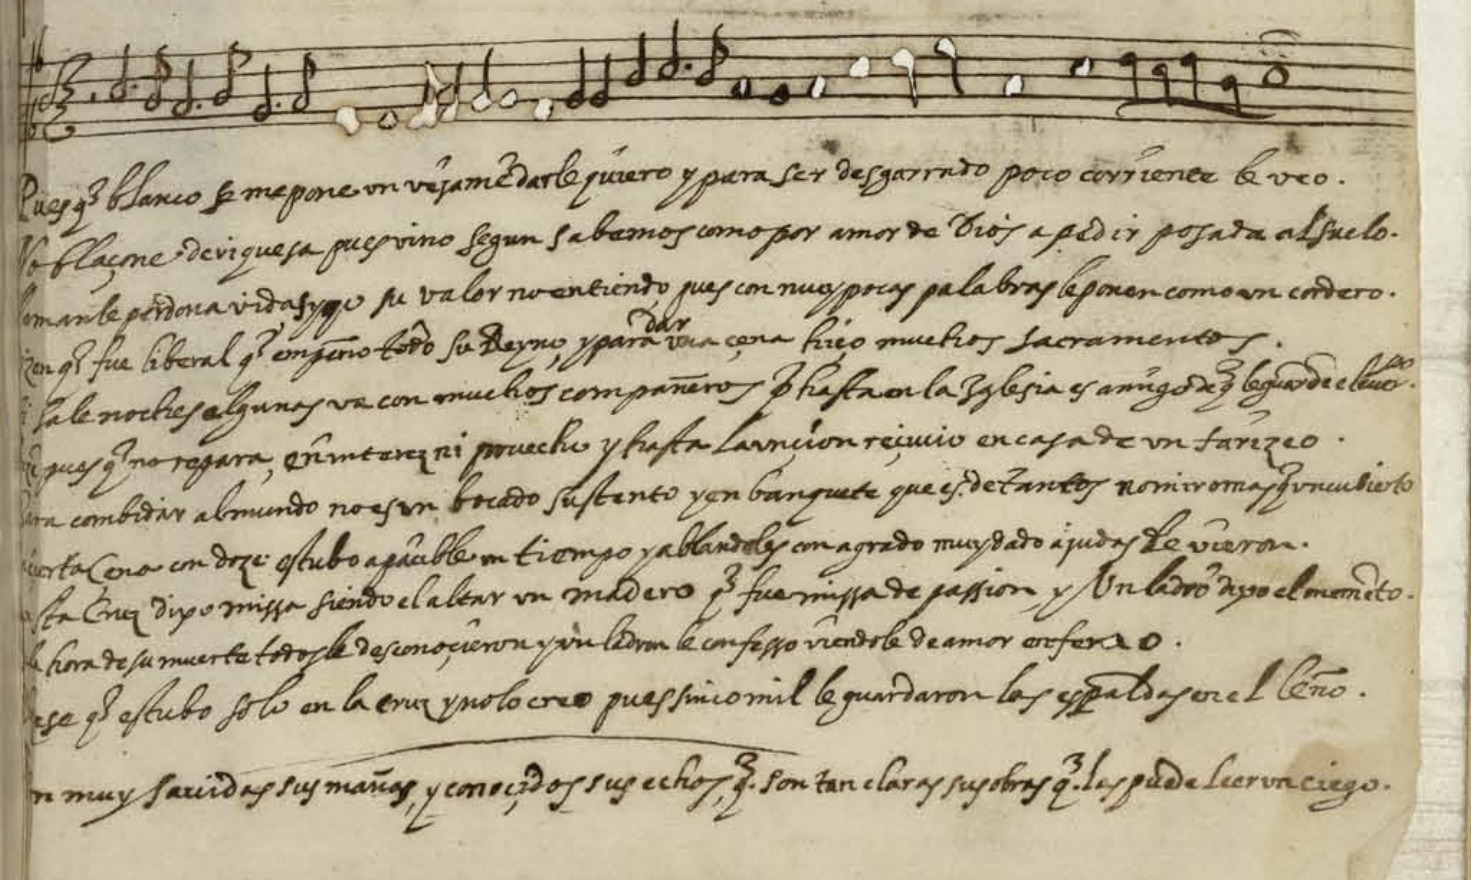 Pues q̃ blanco se me pone un vejamẽ darle quiero y para ser desgarrado poco corriente le veo.
No blaçone de riquesa pues vino segun sabemos como por amor de Dios a pedir posada al suelo.
perdona vidas y yo su valor no entiendo pues con muy pocas palabras le ponen como un cordero.
q̃ fue liberal q̃ empeño todo su Reyno, y para dar una çena hiço muchos sacramentos.
sale noches algunas va con muchos compañeros q̃ hasta en la Iglesia es amigo de q̃ le guarde el
pues q̃ no repara, en interez ni provecho y hasta la unçion reçivio en casa de un farizeo.
combidar al mundo no es un bocado sustento y en banquete que es de tantos no miro mas q̃ un cubierto
Çena con doze estubo apaçible un tiempo y ablandoles con agrado muy dado a judas le vieron.
Cruz dixo missa siendo el altar un madero q̃ fue missa de passion, y Un ladrõ dixo el momẽto.
hora de su muerte todos le desconoçieron y un ladron le confesso viendole de amor enfermo.
q̃ estubo solo en la cruz y no lo creo pues sinco mil le guardaron las espaldas en el leño.
muy savidas sus mañas, y conoçidos sus echos, q̃. son tan claras sus obras q̃. las puede leer un ciego.